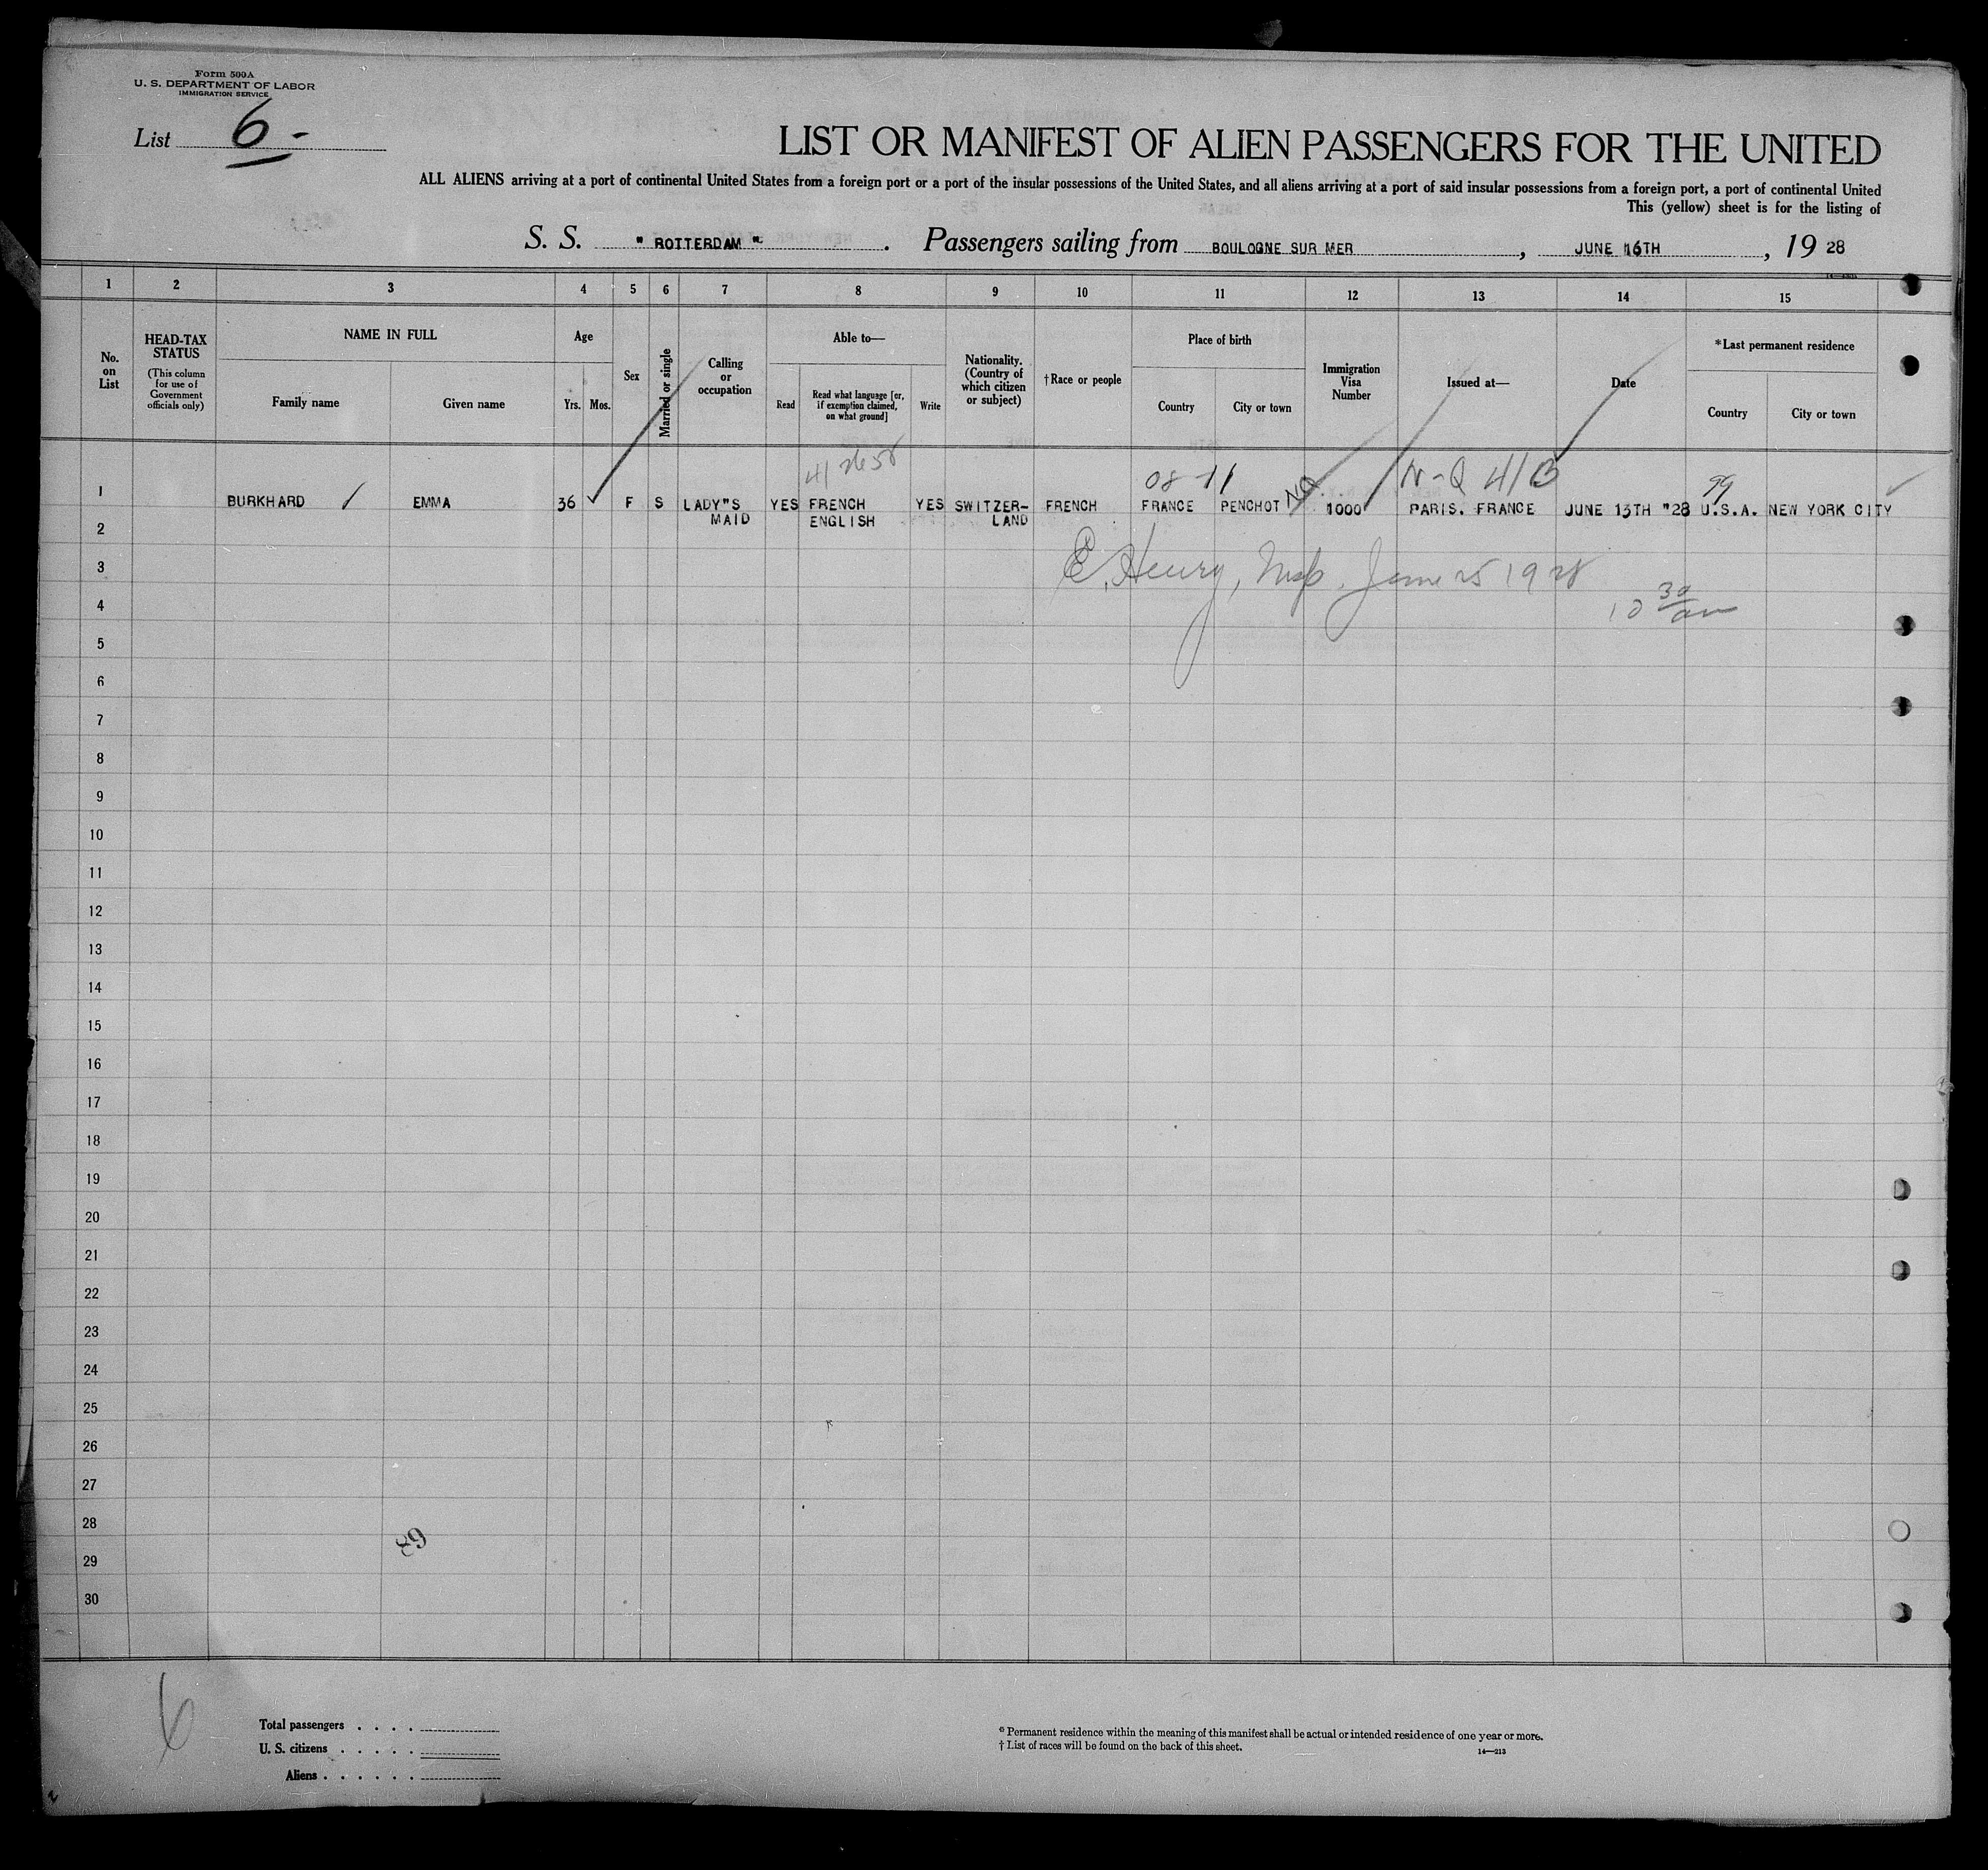 Form 500A
U. S. DEPARTMENT OF LABOR
IMMIGRATION SERVICE
List 6 -
LIST OR MANIFEST OF ALIEN PASSENGERS FOR THE UNITED
ALL ALIENS arriving at a port of continental United States from a foreign port or a port of the insular possessions of the United States, and all aliens arriving at a port of said insular possessions from a foreign port, a port of continental United
This (yellow) sheet is for the listing of
S. S. " ROTTERDAM " . Passengers sailing from BOULOGNE SUR MER , JUNE 16TH , 19 28
1 2 3 4 5 6 7 8 9 10 11 12 13 14 15
No. on List
HEAD-TAX STATUS
(This column for use of Government officials only)
NAME IN FULL
Family name Given name
Age
Yrs. Mos.
Sex
Married or single
Calling or occupation
Able to—
Read
Read what language [or, if exemption claimed, on what ground]
Write
Nationality. (Country of which citizen or subject)
†Race or people
Place of birth
Country City or town
Immigration Visa Number
Issued at—
Date
*Last permanent residence
Country City or town
08 11 N-Q 41 99
1 BURKHARD EMMA 36 F S LADY"S YES FRENCH YES SWITZER- FRENCH FRANCE PENCHOT 1000 PARIS. FRANCE JUNE 13TH "28 U.S.A. NEW YORK CITY
2 MAID ENGLISH LAND
3 E. Henry, Insp. June 25 1928
4 10 30 am
5
6
7
8
9
10
11
12
13
14
15
16
17
18
19
20
21
22
23
24
25
26
27
28
89
29
30
6
Total passengers . . . .
U. S. citizens . . . . .
Aliens . . . . . .
* Permanent residence within the meaning of this manifest shall be actual or intended residence of one year or more.
† List of races will be found on the back of this sheet.
14—213